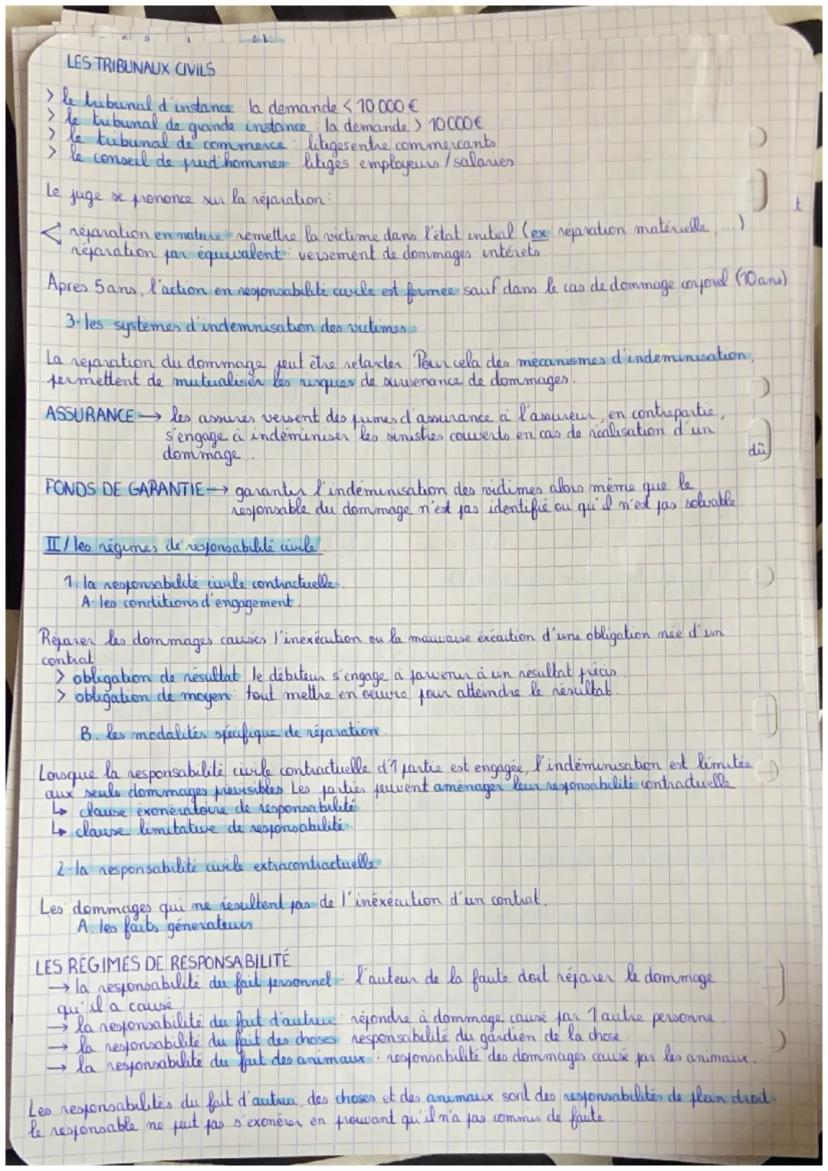 LES TRIBUNAUX CIVILS
> le tribunal d'instance : la demande < 10 000 €
> le tribunal de grande instance : la demande > 10000€
> le tribunal de commerce : litiges entre commerçants
> le conseil de prud'hommes : litiges employeurs / salariés
Le juge se prononce sur la réparation :
< réparation en nature : remettre la victime dans l'état initial (ex réparation matérielle, ...)
réparation par équivalent : versement de dommages intérêts.
Après 5ans, l'action en responsabilité civile est fermée sauf dans le cas de dommage corporel (10ans)
3- les systèmes d'indemnisation des victimes
La réparation du dommage peut être retarder. Pour cela des mécanismes d'indeminisation,
permettent de mutualiser les risques de survenance de dommages.
ASSURANCE → les assurés versent des primes d'assurance à l'assureur, en contrepartie,
s'engage à indéminiser les sinistres couverts en cas de réalisation d'un
dommage.
dû
FONDS DE GARANTIE → garantir l'indéminisation des victimes alors même que le
responsable du dommage n'est pas identifié ou qu'il n'est pas solvable
II/ les régimes de responsabilité civile
1. la responsabilité civile contractuelle.
A- les conditions d'engagement.
Réparer les dommages causés l'inexécution ou la mauvaise éxécution d'une obligation née d'un
contrat
> obligation de résultat : le débiteur s'engage à parvenir à un résultat précis
> obligation de moyen : tout mettre en œuvre pour atteindre le résultat.
B. les modalités spécifique de réparation
Lorsque la responsabilité civile contractuelle d'1 partie est engagée, l'indéminisation est limitée
aux seuls dommages prévisibles. Les parties peuvent aménager leur responsabilité contractuelle
↳ clause éxonératoire de responsabilité
↳ clause limitative de responsabilité.
2- la responsabilité civile extracontractuelle
Les dommages qui ne résultent pas de l'inéxécution d'un contrat.
A. les faits générateurs
LES RÉGIMES DE RESPONSABILITÉ
→ la responsabilité du fait personnel : l'auteur de la faute doit réparer le dommage
qu'il a causé
→ la responsabilité du fait d'autrui : répondre à dommage causé par 1 autre personne
→ la responsabilité du fait des choses : responsabilité du gardien de la chose.
→ la responsabilité du fait des animaux : responsabilité des dommages causé par les animaux.
Les responsabilités du fait d'autrui, des choses et des animaux sont des responsabilités de plein droit
le responsable ne peut pas s'exonérer en prouvant qu'il n'a pas commis de faute.